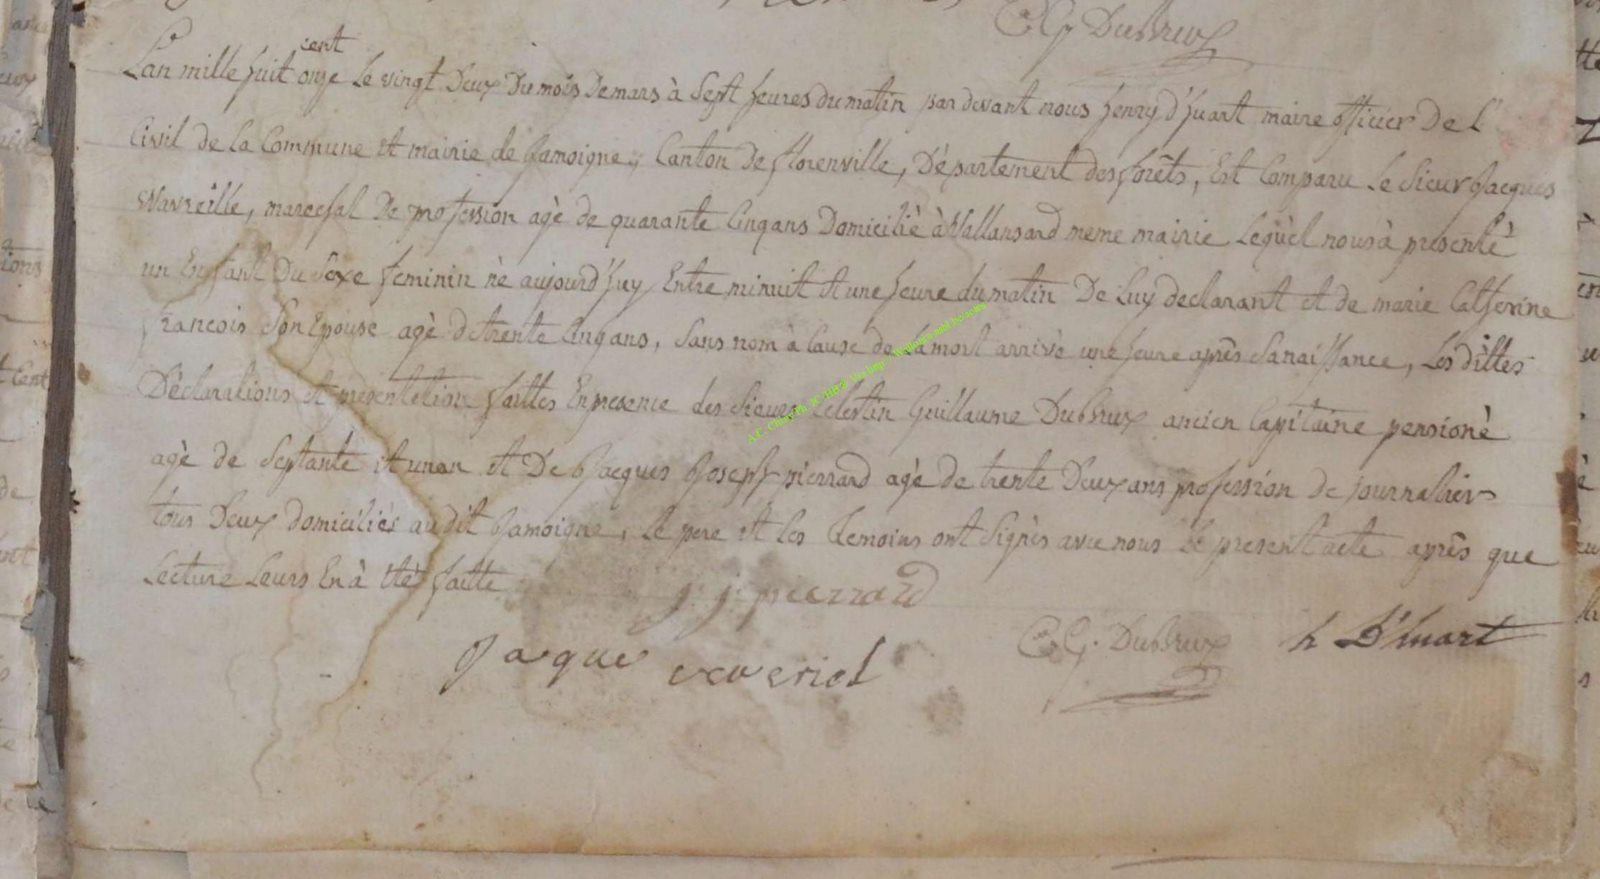 C G Dubrux
cent
L'an mille huit onze le vingt Deux Du mois De mars à Sept heures du matin par devant nous henry d'huart maire officier De L'
Civil de la Commune et mairie de Jamoigne, Canton de florenville, Département des forêts, Est Comparu Le Sieur Jacques
Wavreille, marechal De profession agè de quarante Cinq ans Domiciliè à Vallansard meme mairie Lequel nous à presentè
un Enfant Du Sexe feminin nè aujourd'huy Entre minuit et une heure du matin De Luy declarant et de marie Catherine
francois Son Epouse agè de trente Cinq ans, Sans nom à Cause de la mort arrivè une heure après Sa naissance, Les dittes
Dèclarations et presentation faittes En presence des Sieurs Celestin Guillaume Dubrux ancien Capitaine pensionè
agè de Septante et un an et De Jacques Joseph pierrard agè de trente Deux ans profession de journalier
tous Deux domiciliés au dit Jamoigne, le pere et les Temoins ont Signès avec nous le present acte après que
Lecture Leurs En à étè faitte
j j pierrard
C G. Dubrux h D'huart
Jaque